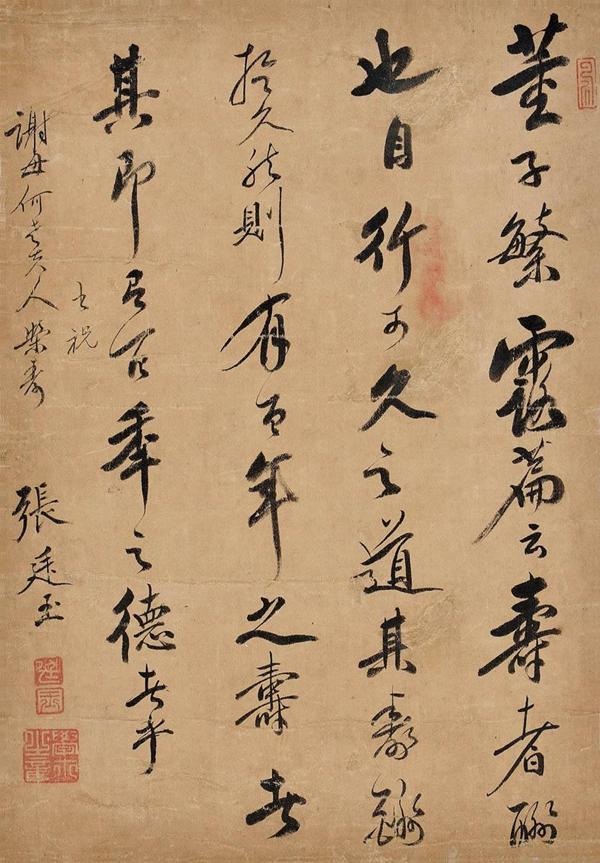 董子繁露篇云壽者酬
也自行可久之道其壽讎
於久然則有百年之壽者
其即有百年之德者乎
上祝
謝母何老夫人榮壽
張廷玉